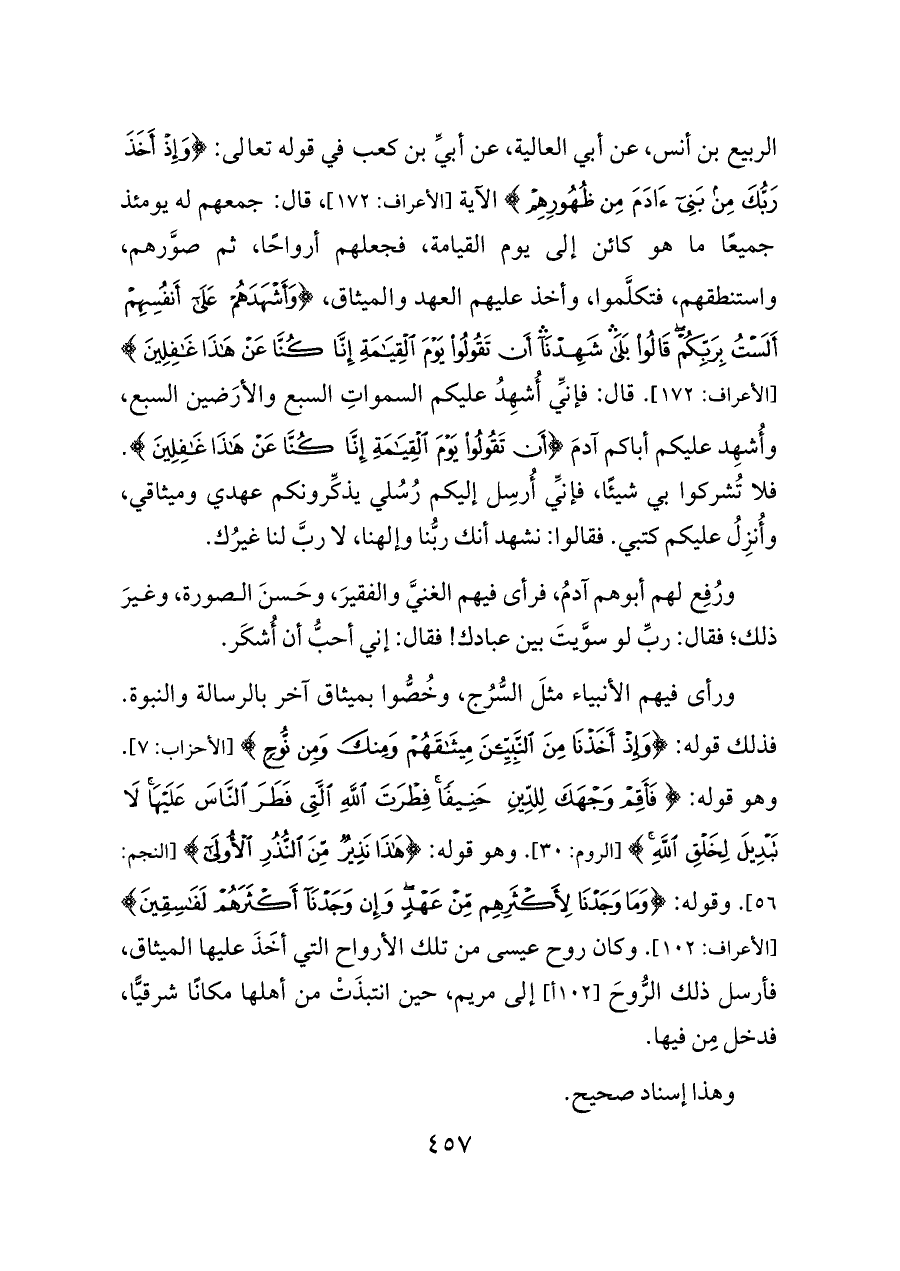 الربيع بن أنس، عن أبي العالية، عن أبيِّ بن كعب في قوله تعالى: ﴿وَإِذْ أَخَذَ
رَبُّكَ مِنۢ بَنِيٓ ءَادَمَ مِن ظُهُورِهِمْ﴾ الآية [الأعراف: ١٧٢]، قال: جمعهم له يومئذ
جميعًا ما هو كائن إلى يوم القيامة، فجعلهم أرواحًا، ثم صوَّرهم،
واستنطقهم، فتكلَّموا، وأخذ عليهم العهد والميثاق، ﴿وَأَشْهَدَهُمْ عَلَىٰٓ أَنفُسِهِمْ
أَلَسْتُ بِرَبِّكُمْ ۖ قَالُوا۟ بَلَىٰ ۛ شَهِدْنَآ ۛ أَن تَقُولُوا۟ يَوْمَ ٱلْقِيَٰمَةِ إِنَّا كُنَّا عَنْ هَٰذَا غَٰفِلِينَ﴾
[الأعراف: ١٧٢]. قال: فإنِّي أُشهِدُ عليكم السمواتِ السبع والأرَضين السبع،
وأُشهِد عليكم أباكم آدمَ ﴿أَن تَقُولُوا۟ يَوْمَ ٱلْقِيَٰمَةِ إِنَّا كُنَّا عَنْ هَٰذَا غَٰفِلِينَ﴾.
فلا تُشركوا بي شيئًا، فإنِّي أُرسِل إليكم رُسُلي يذكِّرونكم عهدي وميثاقي،
وأُنزِلُ عليكم كتبي. فقالوا: نشهد أنك ربُّنا وإلهنا، لا ربَّ لنا غيرُك.
ورُفِع لهم أبوهم آدمُ، فرأى فيهم الغنيَّ والفقيرَ، وحَسنَ الصورة، وغيرَ
ذلك؛ فقال: ربِّ لو سوَّيتَ بين عبادك! فقال: إني أحبُّ أن أُشكَر.
ورأى فيهم الأنبياء مثلَ السُّرُج، وخُصُّوا بميثاق آخر بالرسالة والنبوة.
فذلك قوله: ﴿وَإِذْ أَخَذْنَا مِنَ ٱلنَّبِيِّـۧنَ مِيثَٰقَهُمْ وَمِنكَ وَمِن نُّوحٍ﴾ [الأحزاب: ٧].
وهو قوله: ﴿فَأَقِمْ وَجْهَكَ لِلدِّينِ حَنِيفًا ۚ فِطْرَتَ ٱللَّهِ ٱلَّتِي فَطَرَ ٱلنَّاسَ عَلَيْهَا ۚ لَا
تَبْدِيلَ لِخَلْقِ ٱللَّهِ ۚ﴾ [الروم: ٣٠]. وهو قوله: ﴿هَٰذَا نَذِيرٌ مِّنَ ٱلنُّذُرِ ٱلْأُولَىٰٓ﴾ [النجم:
٥٦]. وقوله: ﴿وَمَا وَجَدْنَا لِأَكْثَرِهِم مِّنْ عَهْدٍ ۖ وَإِن وَجَدْنَآ أَكْثَرَهُمْ لَفَٰسِقِينَ﴾
[الأعراف: ١٠٢]. وكان روح عيسى من تلك الأرواح التي أخَذَ عليها الميثاق،
فأرسل ذلك الرُّوحَ [١٠٢أ] إلى مريم، حين انتبذَتْ من أهلها مكانًا شرقيًّا،
فدخل مِن فيها.
وهذا إسناد صحيح.
٤٥٧